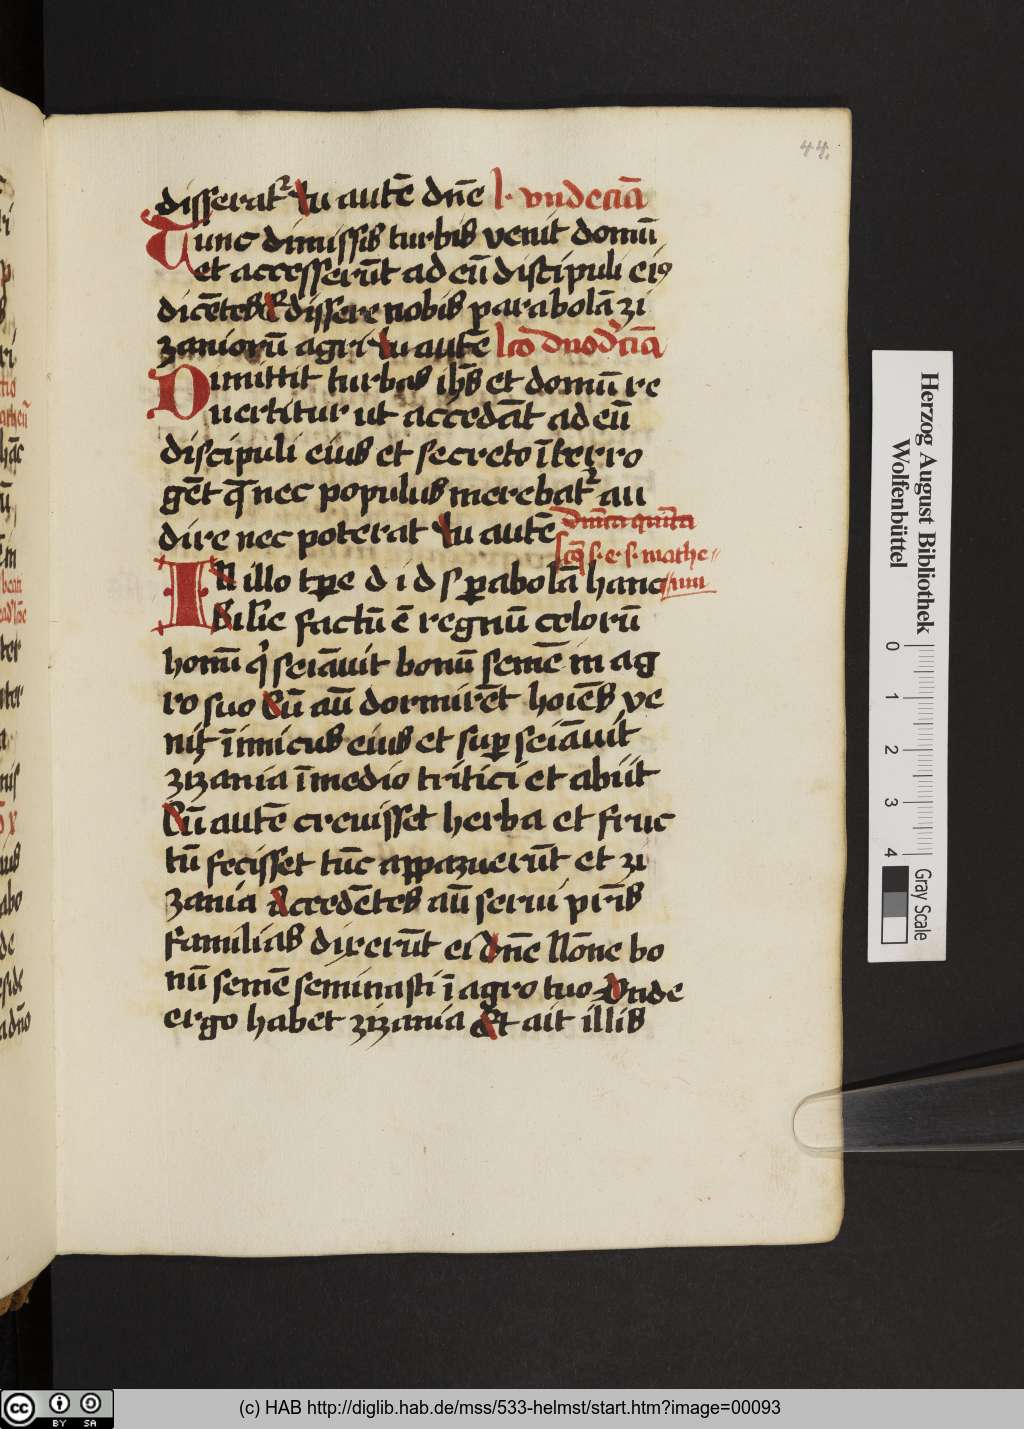 44.
disserat᷑ tu autē dn̄e l. undecīā
Tunc dimissis turbis venit domū
et accesserūt ad eū discipuli eiꝰ
dicētes Edissere nobis parabolā zi
zaniorū agri tu autē lcō duod̄cīā
Dimittit turbas ih̄s et domū re
vertitur ut accedāt ad eū
discipuli eius et secreto īterro
gēt q̄ nec populus merebat᷑ au
dire nec poterat tu autē dnīca quīta
scd̄ s. e. s. mathe
um
IN illo tp̄e d i d s ꝑabolā hanc
Sil̄e factū ē regnū celorū
homī qͥ seīāvit bonū semē in ag
ro suo Cū aū dormirēt hoīēs ve
nit īimicus eius et suꝑ seīāvit
zizania ī medio tritici et abiit
Cū autē crevisset herba et fruc
tū fecisset tūc apparuerūt et zi
zania Accedētes aū servi pr̄is
familias dixerūt ei dn̄e nōne bo
nū semē seminasti ī agro tuo Unde
ergo habet zizania Et ait illis
Herzog August Bibliothek
Wolfenbüttel
0 1 2 3 4
Gray Scale
(c) HAB http://diglib.hab.de/mss/533-helmst/start.htm?image=00093
cc BY SA